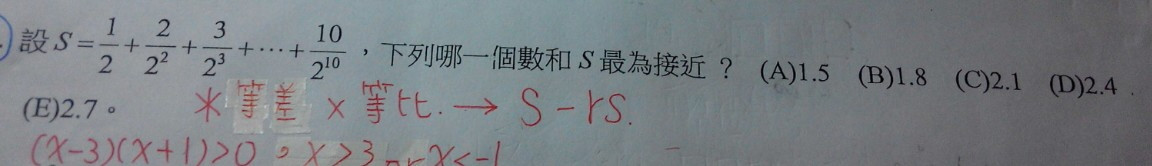 設 S = 1/2 + 2/2² + 3/2³ + ⋯ + 10/2¹⁰ ，下列哪一個數和 S 最為接近？ (A)1.5 (B)1.8 (C)2.1 (D)2.4
(E)2.7。 ＊等差 × 等比. → S - rS.
(x-3)(x+1)>0 。 x>3 or x<-1